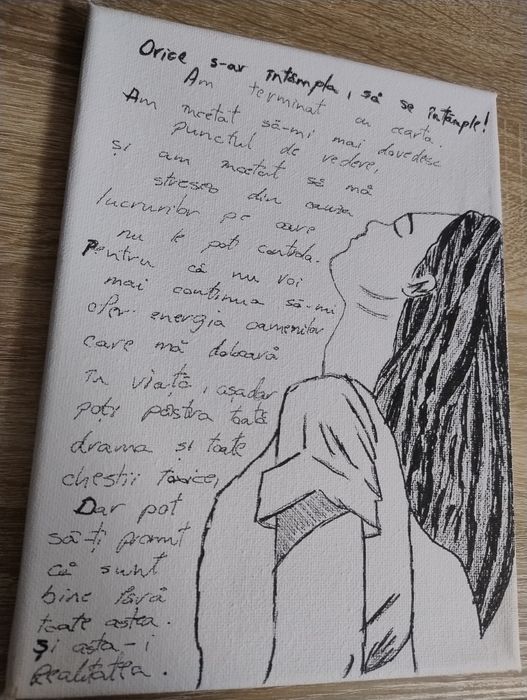 Orice s-ar întâmpla, să se întâmple!
Am terminat cu cearta.
Am încetat să-mi mai dovedesc
punctul de vedere,
și am încetat să mă
stresez din cauza
lucrurilor pe care
nu le poți controla.
Pentru că nu voi
mai continua să-mi
ofer energia oamenilor
care mă doboară
în viață, așadar
poți păstra toată
drama și toate
chestii toxice,
Dar pot
să-ți promit
că sunt
bine fără
toate astea.
Și asta-i
Realitatea.